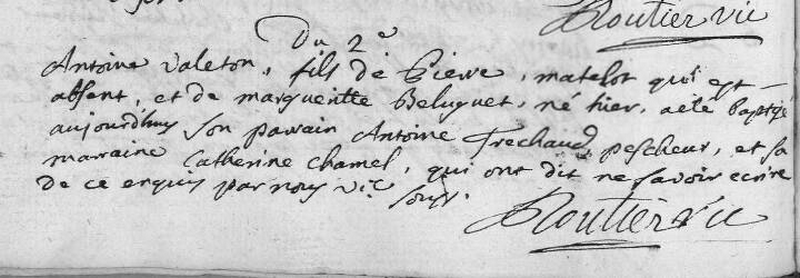 Routier vic
Du 2e
Antoine valeton, fils de Pierre, matelot qui est
absent, et de margueritte Beluguet, né hier, a eté baptisé
aujourdhuy son parain Antoine Frechaud, pescheur, et sa
marraine Catherine chamel, qui ont dit ne savoir ecrire
de ce enquis par nous vic. souss.
Routier vic